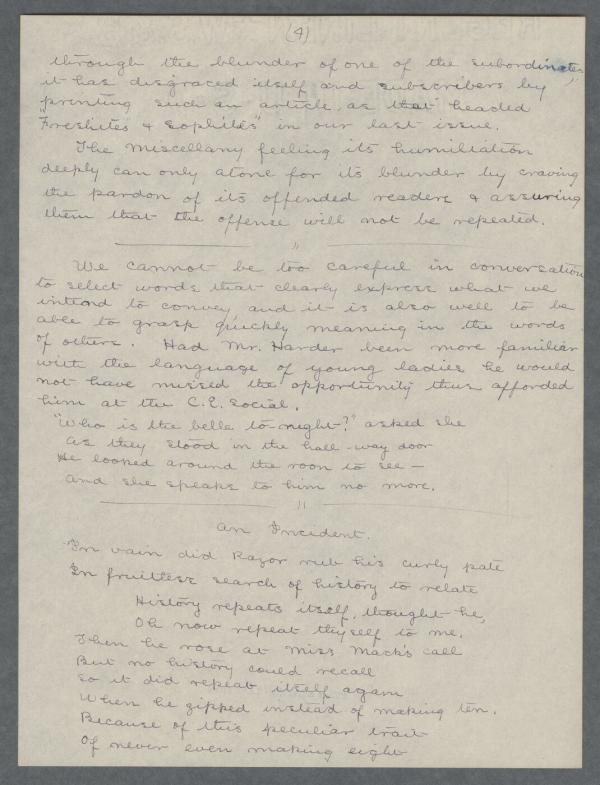 (4)
through the blunder of one of the subordinates,
it has disgraced itself and subscribers by
printing such an article, as that headed
"Freshites & Sophites" in our last issue.
The Miscellany feeling its humiliation
deeply can only atone for its blunder by craving
the pardon of its offended readers & assuring
them that the offense will not be repeated.
"
We cannot be too careful in conversation
to select words that clearly express what we
intend to convey, and it is also well to be
able to grasp quickly meaning in the words
of others. Had Mr. Harder been more familiar
with the language of young ladies he would
not have missed the opportunity thus afforded
him at the C.E. Social.
"Who is the belle to-night?" asked she
As they stood in the hall-way door
He looked around the room to see —
And she speaks to him no more.
"
An Incident.
In vain did Razor rub his curly pate
In fruitless search of history to relate
History repeats itself, thought he,
Oh now repeat thyself to me.
Then he rose at Miss Mack's call
But no history could recall
So it did repeat itself again
When he zipped instead of making ten.
Because of this peculiar trait
Of never even making eight